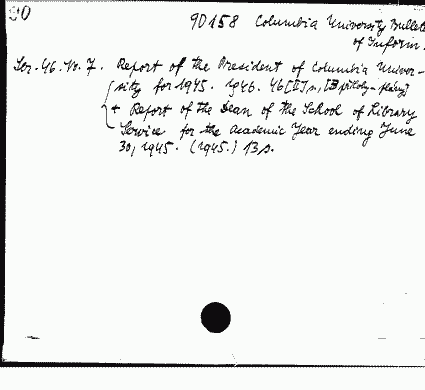 90
90158 Columbia University Bulletin
of Inform.
Ser. 46. No. 7. Report of the President of Columbia Univer-
sity for 1945. 1946. 46 [1] p.,
+ Report of the Dean of the School of Library
Service for the Academic Year ending June
30, 1945. (1945.) 13 p.